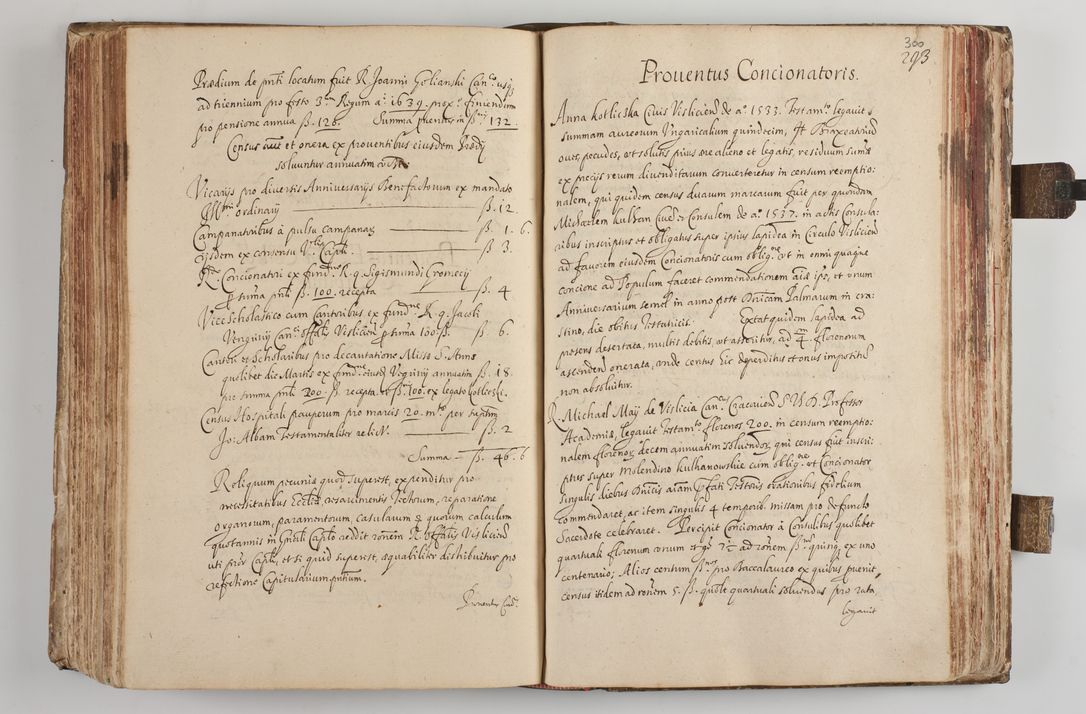 Prædium de pnti locatum fuit R. Joanni Golianski Canco. usq3
ad triennium pro festo 3um Regum ao. 1639. prox. finiendum
pro pensione annua ß. 126. Summa fluentes in ßnis 132.
Census aute et onera ex prouentibus eiusdem Prædij
soluuntur annuatim
Vicarijs pro diuersis Anniuersarijs Benefactorum ex mandato
ordinarij ß. 12.
Campanatoribus à pulsu campanarz ß. 1. 6.
ijsdem ex consensu Vlis Captli. ß 3.
Rdo Concionatori ex fundne R. q. Sigismundi Gromecij
p suma pnti ß. 100. recepta ß. 4
ViceScholastico cum Cantoribus ex fundne R. q. Jacobi
Vengririj Canci offalis Vislicien p suma 100. ß. ß 6.
Cantori et Scholaribus pro decantatione Missæ S. Annæ
quolibet die Martis ex fundne eiusd Vegririj annuatim ß. 18.
pro summa pnti 200. ß. recepta et ß. 100. ex legato Kotleczki.
Census Hospitali pauperum pro marcis 20. mto per
Jo: Albam Testamentaliter relict. ß. 2
Summa ß. 46. 6
Reliquum pecuniæ quod superest, expenditur pro
necessitatibus Ecclæ, resarcimentis Tectorum, reparatione
organorum, paramentorum, casularum & quorum calculum
quotannis in Gnali Caplo reddit ronem R. Offalis Vislicien
uti prior Capli, et si quid superest, æqualiter distribuitur pro
refectione Capitularium pntium.
Prouentus
300
293
Prouentus Concionatoris.
Anna Kotliczka Ciuis Vislicien de ao. 1533. Testamto legauit
summam aureorum Vngaricalium quindecim, It Braxeatoriu
oues, pecudes, et solutis prius ære alieno et legatis, residuum sumæ
ex precijs rerum diuenditarum conuerteretur in censum reemptio:
nalem, qui quidem census duarum marcarum fuit per quondam
Michaelem Kulhan Ciuem et Consulem de ao. 1537. in actis Consula:
ribus inscriptus et obligatus super ipsius lapidea in Circulo Vislicien
ad fauorem eiusdem Concionatoris cum obligne. vt in omni quaque
concione ad Populum faceret commendationem aiæ ipso, et vnum
Anniuersarium semel in anno post Dnicam Palmarum in cra:
stino, die obitus Testatricis. Extat quidem lapidea ad
præsens desertata, multis debitis, vt asseritur, ad 4/m florenorum
ascenden onerata, vnde census hic deperditus et onus impositu
non absoluitur.
R. Michael Maij de Vislicia Cancus Cracouien S V D. Professor
Academiæ, legauit Testamto florenos 200. in censum reemptio:
nalem florenorz decem annuatim soluendorz, qui census fuit inscri:
ptus super Molendino Kulhanowskie cum obligne. vt Concionator
singulis diebus Dnicis aiam pfati Testoris orationibus fidelium
commendaret, ac item singulis 4 temporib. missam pro defuncto
Sacerdote celebraret. Percipit Concionator à Consulibus quolibet
quartuali florenum vnum et gr. 7½ ad ronem ßnis quinq3 ex uno
centenario; Alios centum ßnos pro Baccalaureo ex quibus puenit
census itidem ad ronem 5. ß. quolt quartuali soluendus pro rata,
legauit